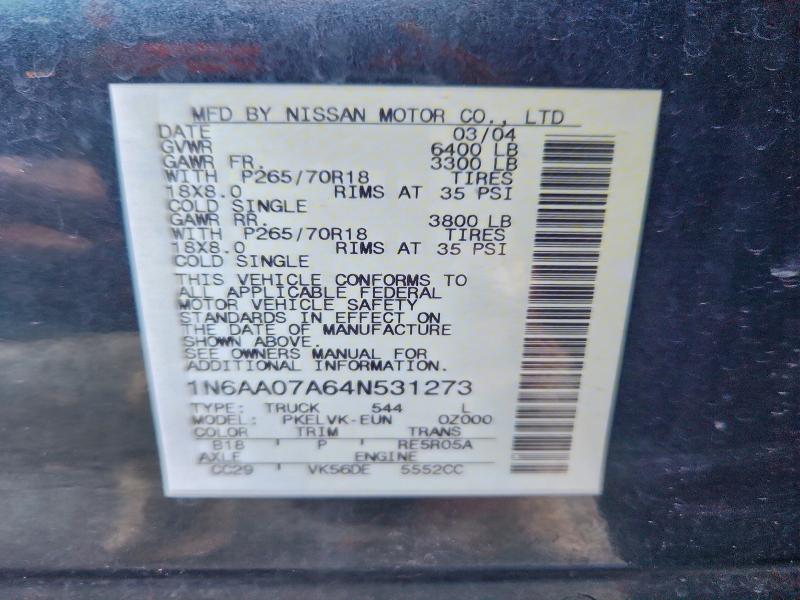 MFD BY NISSAN MOTOR CO., LTD
DATE 03/04
GVWR 6400 LB
GAWR FR. 3300 LB
WITH P265/70R18 TIRES
18X8.0 RIMS AT 35 PSI
COLD SINGLE
GAWR RR. 3800 LB
WITH P265/70R18 TIRES
18X8.0 RIMS AT 35 PSI
COLD SINGLE
THIS VEHICLE CONFORMS TO
ALL APPLICABLE FEDERAL
MOTOR VEHICLE SAFETY
STANDARDS IN EFFECT ON
THE DATE OF MANUFACTURE
SHOWN ABOVE.
SEE OWNERS MANUAL FOR
ADDITIONAL INFORMATION.
1N6AA07A64N531273
TYPE: TRUCK 544 L
MODEL: PKELVK-EUN 0Z000
COLOR TRIM TRANS
B18 P RE5R05A
AXLE ENGINE
CC29 VK56DE 5552CC